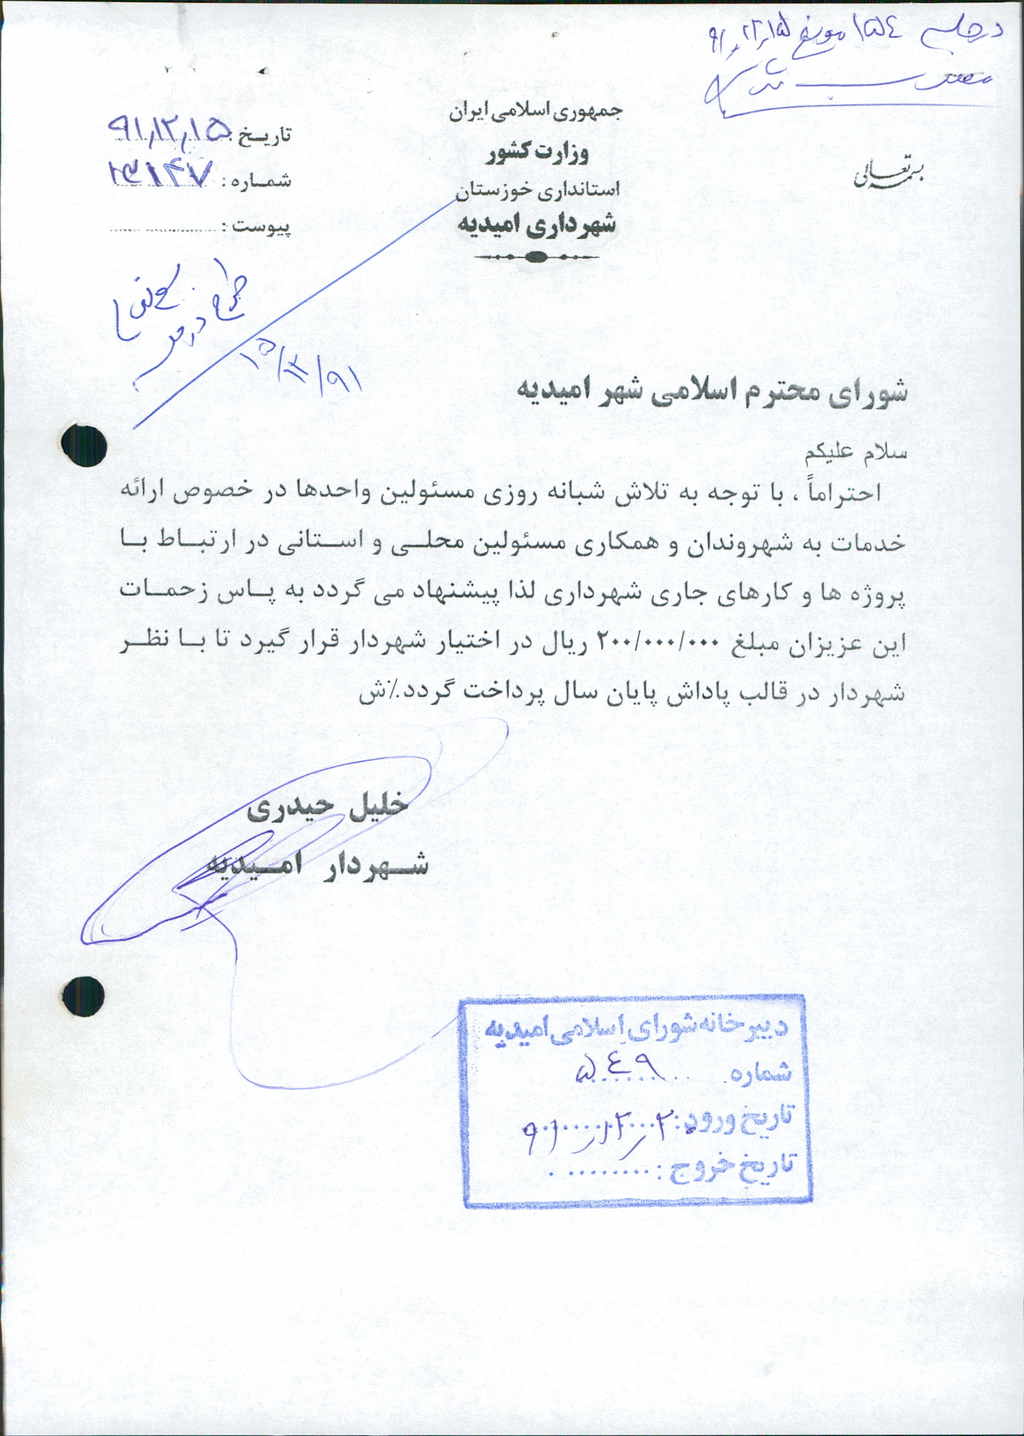 در جلسه ۱۵۴ مورخ ۹۱,۱۲,۱۵
مصوب شد
بسمه تعالی
جمهوری اسلامی ایران
وزارت کشور
استانداری خوزستان
شهرداری امیدیه
تاریخ : ۹۱,۱۲,۱۵
شماره : ۲۳۱۴۷
پیوست :
طرح در
۹۱/۱۲/۱۵
شورای محترم اسلامی شهر امیدیه
سلام علیکم
احتراماً ، با توجه به تلاش شبانه روزی مسئولین واحدها در خصوص ارائه
خدمات به شهروندان و همکاری مسئولین محلی و استانی در ارتباط با
پروژه ها و کارهای جاری شهرداری لذا پیشنهاد می گردد به پاس زحمات
این عزیزان مبلغ ۲۰۰/۰۰۰/۰۰۰ ریال در اختیار شهردار قرار گیرد تا با نظر
شهردار در قالب پاداش پایان سال پرداخت گردد.٪ش
خلیل حیدری
شهردار امیدیه
دبیرخانه شورای اسلامی امیدیه
شماره ۵۴۹
تاریخ ورود: ۹۱,۱۲,۲۰
تاریخ خروج :